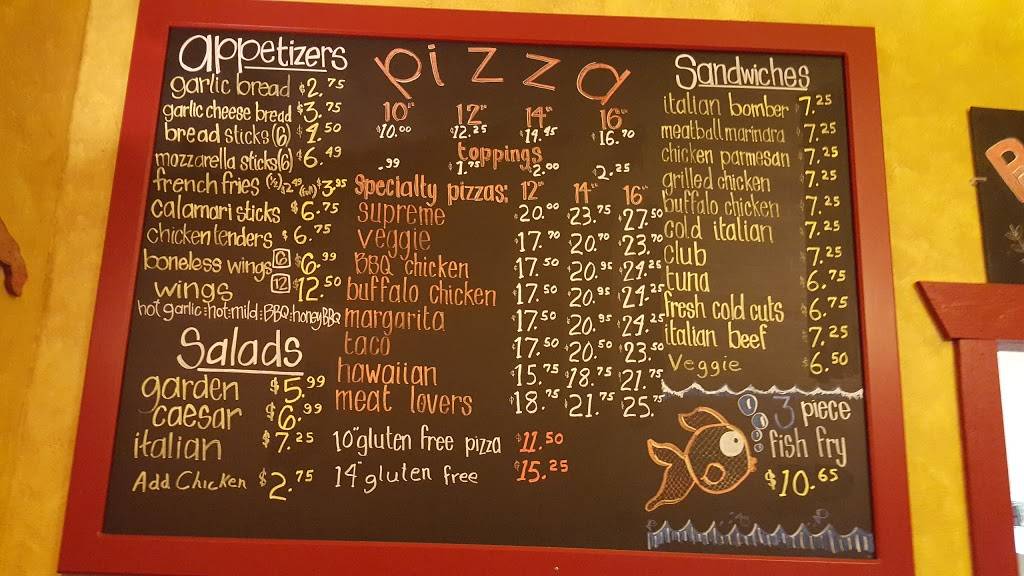 appetizers
garlic bread $2.75
garlic cheese bread $3.75
bread sticks (6) $4.50
mozzarella sticks (6) $6.49
french fries (½) $2.49 (full) $3.95
calamari sticks $6.75
chicken tenders $6.75
boneless wings 6 $6.99
wings 12 $12.50
hot garlic:hot:mild:BBQ:honey BBQ
Salads
garden $5.99
caesar $6.99
italian $7.25
Add Chicken $2.75
pizza
10" 12" 14" 16"
$10.00 $12.25 $14.95 $16.70
toppings
.99 $1.75 $2.00 2.25
Specialty pizzas: 12" 14" 16"
supreme $20.00 $23.75 $27.50
veggie $17.70 $20.70 $23.70
BBQ chicken $17.50 $20.95 $24.25
buffalo chicken $17.50 $20.95 $24.25
margarita $17.50 $20.95 $24.25
taco $17.50 $20.50 $23.50
hawaiian $15.75 $18.75 $21.75
meat lovers $18.75 $21.75 $25.75
10" gluten free pizza $11.50
14" gluten free $15.25
Sandwiches
italian bomber $7.25
meatball marinara $7.25
chicken parmesan $7.25
grilled chicken $7.25
buffalo chicken $7.25
cold italian $7.25
club $7.25
tuna $6.75
fresh cold cuts $6.75
italian beef $7.25
Veggie $6.50
3 piece
fish fry
$10.65